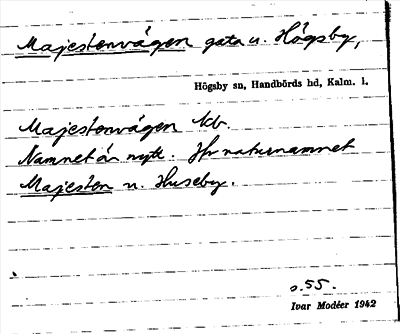 Majestenvägen gata u. Högsby,
Högsby sn, Handbörds hd, Kalm. l.
Majestenvägen
Namnet är nytt. Av naturnamnet
Majesten n. Huseby.
s. 55.
Ivar Modéer 1942